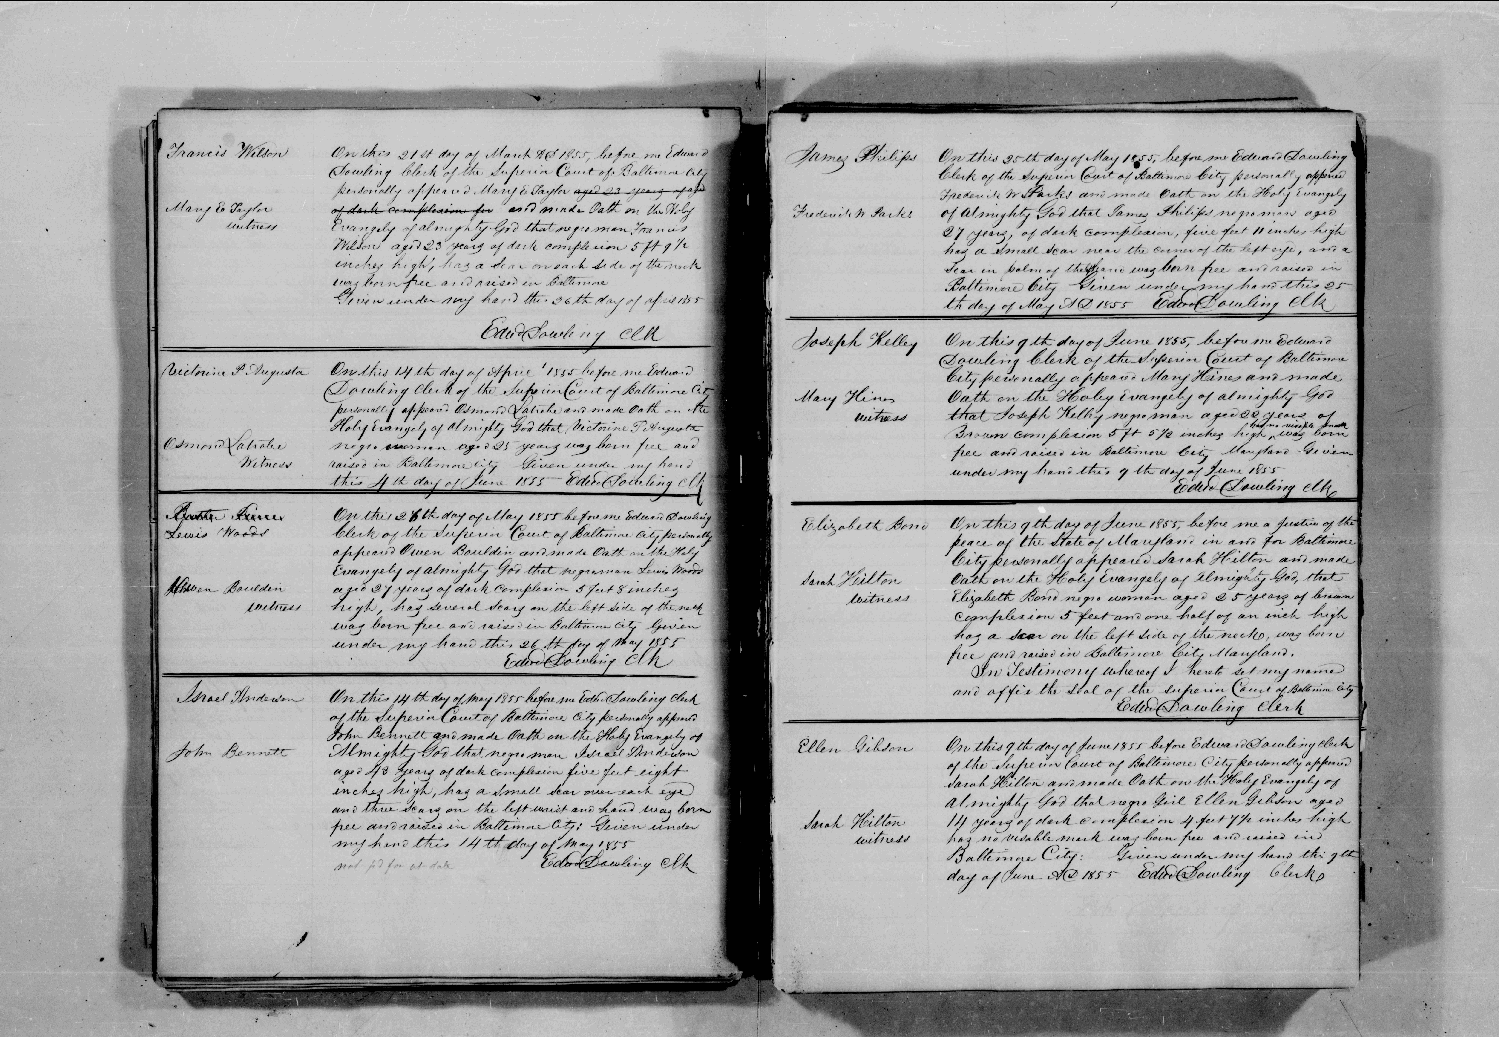 Francis Wilson
Mary E Taylor
witness
On this 21st day of March AD 1855, before me Edward
Dowling Clerk of the Superior Court of Baltimore City
personally appeared Mary E Taylor aged 23 years of age
of dark complexion for and made Oath on the Holy
Evangely of almighty God that negro man Francis
Wilson aged 23 years of dark complexion 5 ft 9 1/2
inches high, has a scar on each side of the neck
was born free and raised in Baltimore
Given under my hand this 26th day of 1855
Edwd Dowling Clk
Victorine P. Augusta
Osmond Latrobe
Witness
On this 14th day of April 1855 before me Edward
Dowling Clerk of the Superior Court of Baltimore City
personally appeared Osmond Latrobe and made Oath on the
Holy Evangely of Almighty God that Victorine P. Augusta
negro woman aged 25 years was born free and
raised in Baltimore City Given under my hand
this 4th day of June 1855 Edwd Dowling Clk
Lewis Woods
Owen Bouldin
witness
On this 26th day of May 1855 before me Edward Dowling
Clerk of the Superior Court of Baltimore City personally
appeared Owen Bouldin and made Oath on the Holy
Evangely of Almighty God that negro man Lewis Woods
aged 27 years of dark complexion 5 feet 8 inches
high, has several scars on the left side of the neck
was born free and raised in Baltimore City Given
under my hand this 26th day of May 1855
Edwd Dowling Clk
Israel Anderson
John Bennett
On this 14th day of May 1855 before me Edwd Dowling Clerk
of the Superior Court of Baltimore City personally appeared
John Bennett and made Oath on the Holy Evangely of
Almighty God that negro man Israel Anderson
aged 43 years of dark complexion five feet eight
inches high, has a small scar over each eye
and three scars on the left wrist and hand was born
free and raised in Baltimore City: Given under
my hand this 14th day of May 1855
not pd for at date
Edwd Dowling Clk
James Philips
Frederick W Parks
On this 25th day of May 1855, before me Edward Dowling
Clerk of the Superior Court of Baltimore City personally appeared
Frederick W Parks and made Oath on the Holy Evangely
of Almighty God that James Philips negro man aged
27 years, of dark complexion, five feet 11 inches high
has a small scar near the corner of the left eye, and a
scar in palm of the hand was born free and raised in
Baltimore City Given under my hand this 25
th day of May AD 1855 Edwd Dowling Clk
Joseph Kelley
Mary Hines
witness
On this 9th day of June 1855, before me Edward
Dowling Clerk of the Superior Court of Baltimore
City personally appeared Mary Hines and made
Oath on the Holey Evangely of almighty God
that Joseph Kelley negro man aged 22 years of
Brown complexion 5 ft 5 1/2 inches high has no visible mark was born
free and raised in Baltimore City Maryland Given
under my hand this 9th day of June 1855
Edwd Dowling Clk
Elizabeth Bond
Sarah Hilton
witness
On this 9th day of June 1855, before me a justice of the
peace of the State of Maryland in and for Baltimore
City personally appeared Sarah Hilton and made
Oath on the Holy Evangely of Almighty God, that
Elizabeth Bond negro woman aged 25 years of brown
complexion 5 feet and one half of an inch high
has a scar on the left side of the neck, was born
free and raised in Baltimore City Maryland.
In Testimony whereof I hereto set my name
and affix the seal of the Superior Court of Baltimore City
Edwd Dowling Clerk
Ellen Gibson
Sarah Hilton
witness
On this 9th day of June 1855 before Edward Dowling Clerk
of the Superior Court of Baltimore City personally appeared
Sarah Hilton and made Oath on the Holy Evangely of
Almighty God that negro Girl Ellen Gibson aged
14 years of dark complexion 4 feet 7 1/2 inches high
has no visable mark was born free and raised in
Baltimore City: Given under my hand this 9th
day of June AD 1855 Edwd Dowling Clerk